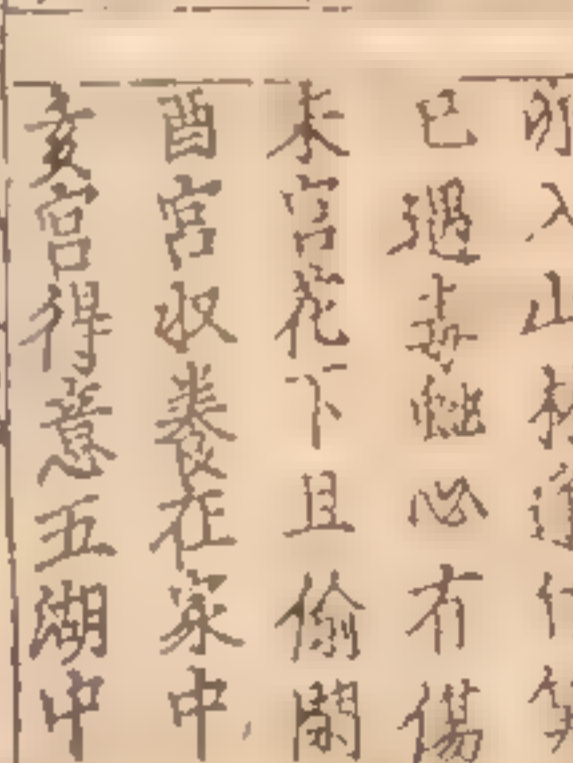 卯入山林逢
巳遇毒必有傷
未宮花下且偷閑
酉宮收養在家中
亥宮得意五湖中